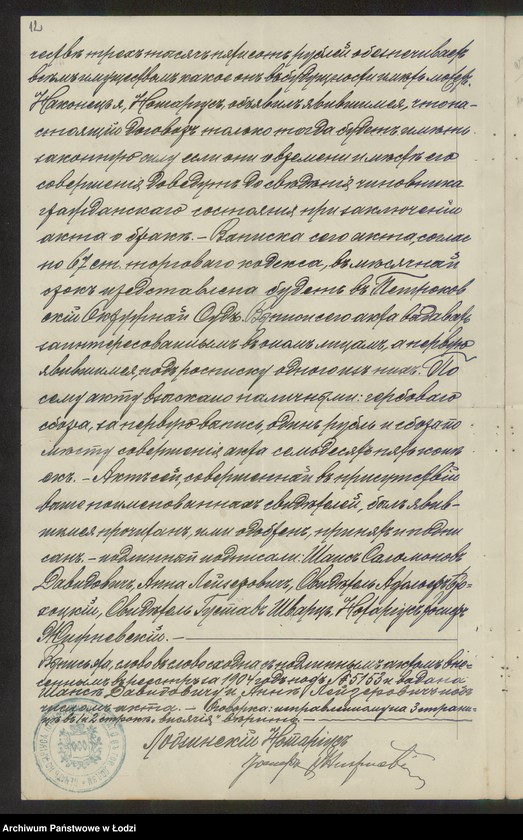 12
честве трехъ тысячъ пяти сотъ рублей обезпечиваетъ
всѣмъ имуществомъ какое онъ въ будущности имѣть можетъ.
Наконецъ я, Нотаріусъ, объявилъ явившимся, что на-
стоящій договоръ только тогда будетъ имѣть
законную силу если они о времени и мѣстѣ его
совершенія доведутъ до свѣдѣнія чиновника
гражданскаго состоянія при заключеніи
акта о бракѣ. – Выписка сего акта, соглас
но 67 ст. торговаго кодекса, въ мѣсячный
срокъ представлена будетъ въ Петроков
скій Окружный Судъ. Выписи сего акта выдавать
заинтересованнымъ въ ономъ лицамъ, а первую
явившимся, подъ росписку одного изъ нихъ. По
сему акту взыскано наличными: гербоваго
сбора, за первую выпись, одинъ рубль и сбора по
мѣсту совершенія акта семьдесятъ пять копѣ
екъ. – Актъ сей, совершенный въ присутствіи
выше поименованныхъ свидѣтелей, былъ явив-
шимся прочитанъ, ими одобренъ, принятъ и подпи
санъ. – подлинный подписали: Шансъ Саломоновъ
Давидовичъ, Анна Лейзеровичъ, Свидѣтель Адольфъ
хоцкій, Свидѣтель Густавъ Шварцъ, Нотаріусъ Іосифъ
Жирневскій. –
Выпись эта, слово въ слово сходна съ подлиннымъ актомъ вне-
сеннымъ въ реестръ за 1904 годъ подъ № 5155 и выдана
Шансу Давидовичу и Аннѣ Лейзеровичъ
акта. – Оговорка: исправленному на 3 страни-
цѣ въ 1 и 2 строкѣ вѣрить. –
Лодзинскій Нотаріусъ